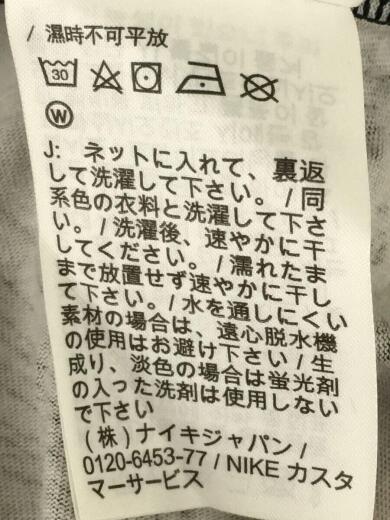 / 濕時不可平放
30
W
J: ネットに入れて、裏返
して洗濯して下さい。/ 同
系色の衣料と洗濯して下さ
い。/ 洗濯後、速やかに干
してください。/ 濡れたま
まで放置せず速やかに干し
て下さい。/ 水を通しにくい
素材の場合は、遠心脱水機
の使用はお避け下さい / 生
成り、淡色の場合は蛍光剤
の入った洗剤は使用しない
で下さい
(株) ナイキジャパン /
0120-6453-77 / NIKE カスタ
マーサービス